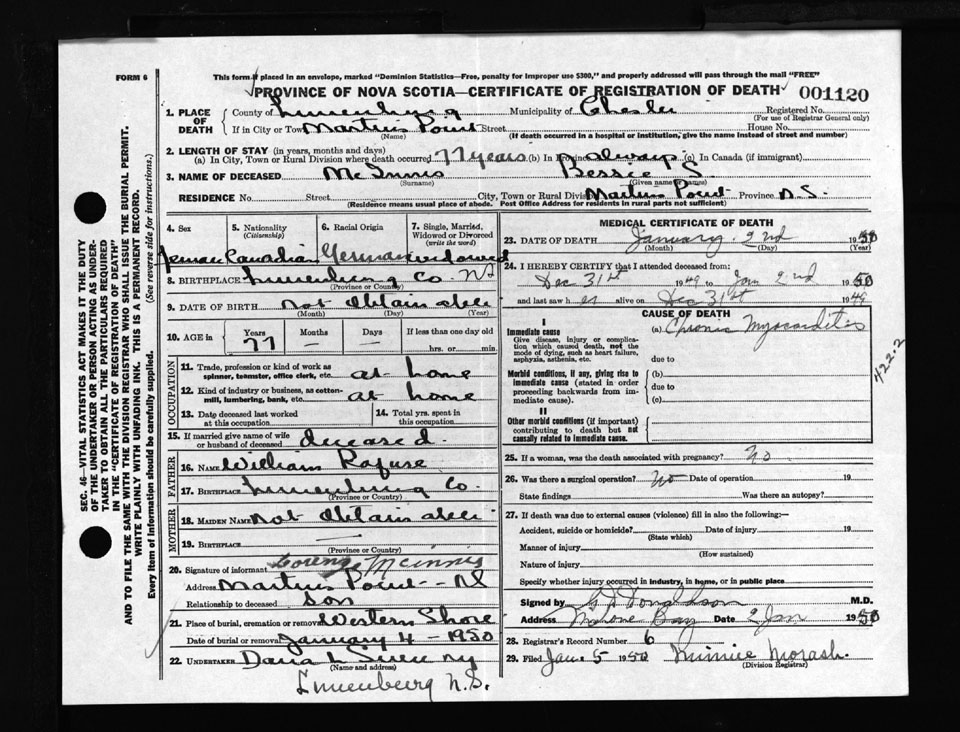 FORM 6
This form if placed in an envelope, marked "Dominion Statistics—Free, penalty for improper use $300," and properly addressed will pass through the mail "FREE"
PROVINCE OF NOVA SCOTIA—CERTIFICATE OF REGISTRATION OF DEATH 001120
1. PLACE OF DEATH
County of Lunenburg Municipality of Chester Registered No.
(For use of Registrar General only)
If in City or Town Martins Point Street House No.
(Name) (If death occurred in a hospital or institution, give the name instead of street and number)
2. LENGTH OF STAY (in years, months and days)
(a) In City, Town or Rural Division where death occurred 77 years (b) In Province always (c) In Canada (if immigrant)
3. NAME OF DECEASED McInnis Bessie S.
(Surname) (Given name)
RESIDENCE No. Street City, Town or Rural Division Martins Point Province N.S.
(Residence means usual place of abode. Post Office Address for residents in rural parts not sufficient)
4. Sex 5. Nationality (Citizenship) 6. Racial Origin 7. Single, Married, Widowed or Divorced (write the word)
Canadian German widowed
8. BIRTHPLACE Lunenburg Co. NS
(Province or County)
9. DATE OF BIRTH not Obtainable
(Month) (Day) (Year)
10. AGE in Years Months Days If less than one day old
77 — — hrs. or min.
OCCUPATION
11. Trade, profession or kind of work as spinner, teamster, office clerk, etc. at home
12. Kind of industry or business, as cotton-mill, lumbering, bank, etc. at home
13. Date deceased last worked at this occupation 14. Total yrs. spent in this occupation
15. If married give name of wife or husband of deceased deceased.
FATHER
16. NAME William Rafuse
17. BIRTHPLACE Lunenburg Co.
(Province or Country)
MOTHER
18. MAIDEN NAME not Obtainable
19. BIRTHPLACE
(Province or Country)
20. Signature of informant McInnis
Address Martins Point - NS
Relationship to deceased son
21. Place of burial, cremation or removal Western Shore
Date of burial or removal January 4 - 1950
22. UNDERTAKER
(Name and address)
Lunenburg N.S.
MEDICAL CERTIFICATE OF DEATH
23. DATE OF DEATH January 2nd 1950
(Month) (Day) (Year)
24. I HEREBY CERTIFY that I attended deceased from:
Dec 31st 1949 to Jan 2nd 1950
and last saw her alive on Dec 31st 1949
CAUSE OF DEATH
I
Immediate cause (a) Chronic Myocarditis
Give disease, injury or complication which caused death, not the mode of dying, such as heart failure, asphyxia, asthenia, etc. due to
Morbid conditions, if any, giving rise to immediate cause (stated in order proceeding backwards from immediate cause). (b)
due to
(c)
II
Other morbid conditions (if important) contributing to death but not causally related to immediate cause.
4222
25. If a woman, was the death associated with pregnancy? No
26. Was there a surgical operation? No Date of operation 19
State findings Was there an autopsy?
27. If death was due to external causes (violence) fill in also the following:—
Accident, suicide or homicide? Date of injury 19
(State which)
Manner of injury
(How sustained)
Nature of injury
Specify whether injury occurred in industry, in home, or in public place
Signed by Donaldson M.D.
Address Mahone Bay Date 2 Jan 1950
28. Registrar's Record Number 6
29. Filed Jan. 5 1950 Minnie Morash.
(Division Registrar)
SEC. 46—VITAL STATISTICS ACT MAKES IT THE DUTY
OF THE UNDERTAKER OR PERSON ACTING AS UNDER-
TAKER TO OBTAIN ALL THE PARTICULARS REQUIRED
IN THE "CERTIFICATE OF REGISTRATION OF DEATH"
AND TO FILE THE SAME WITH THE DIVISION REGISTRAR WHO SHALL ISSUE THE BURIAL PERMIT.
WRITE PLAINLY WITH UNFADING INK. THIS IS A PERMANENT RECORD.
Every item of information should be carefully supplied. (See reverse side for instructions.)